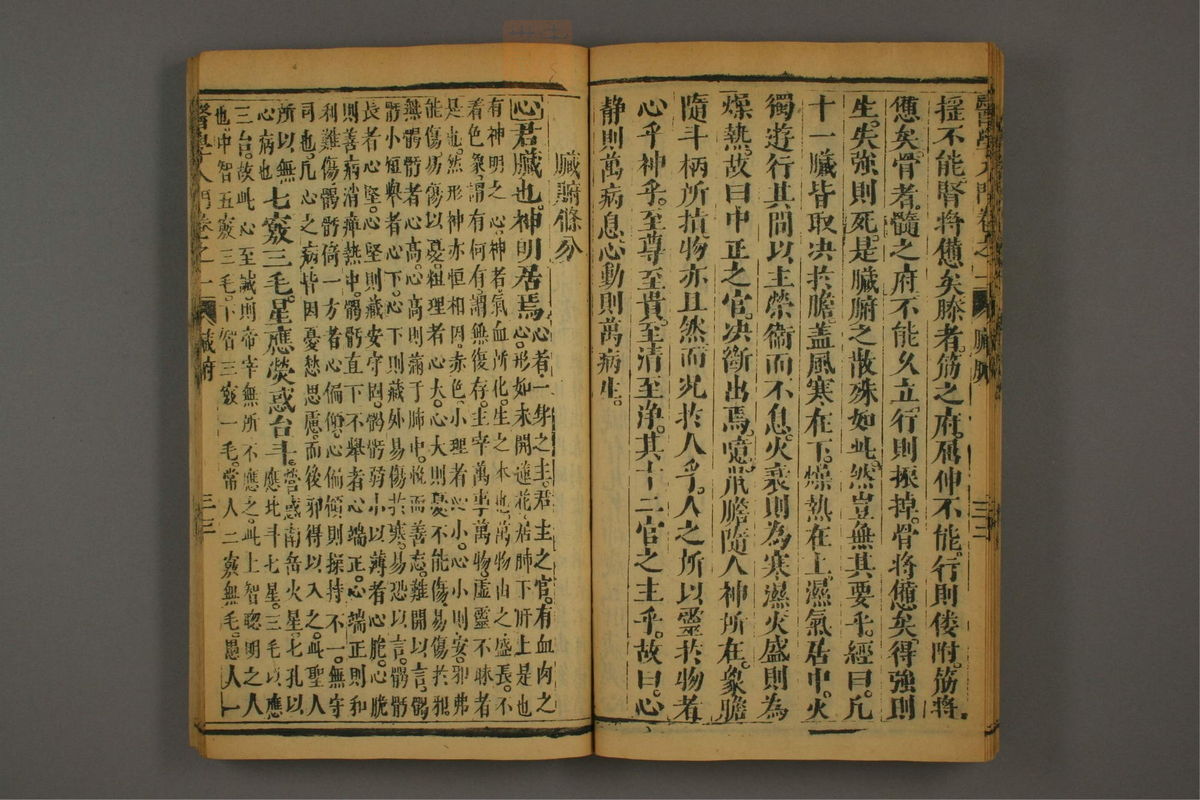 醫學入門卷之一 臟腑 三三
搖不能腎將憊矣膝者筋之府屈伸不能行則僂附筋將
憊矣骨者髓之府不能久立行則振掉骨將憊矣得強則
生失強則死是臟腑之散殊如此然豈無其要乎經曰凡
十一臟皆取決於膽蓋風寒在下燥熱在上濕氣居中火
獨遊行其間以主榮衛而不息火衰則為寒濕火盛則為
燥熱故曰中正之官決斷出焉噫鼠膽隨人神所在象膽
隨斗柄所指物亦且然而況於人乎人之所以靈於物者
心乎神乎至尊至貴至清至淨其十二官之主乎故曰心
靜則萬病息心動則萬病生
臟腑條分
心君臟也神明居焉
心者一身之主君主之官有血肉之
心形如未開蓮花居肺下肝上是也
有神明之心神者氣血所化生之本也萬物由之盛長不
看色象謂有何有謂無復存主宰萬事萬物虛靈不昧者
是也然形神亦恒相因赤色小理者心小心小則安邪弗
能傷易傷以憂粗理者心大心大則憂不能傷易傷於邪
無髑骬者心高心高則滿于肺中悅而善忘難開以言髑
骬小短舉者心下心下則藏外易傷於寒易恐以言髑骬
長者心堅心堅則藏安守固髑骬弱小以薄者心脆心脆
則善病消癉熱中髑骬直下不舉者心端正心端正則和
利難傷髑骬倚一方者心偏傾心偏傾則操持不一無守
司也凡心之病皆因憂愁思慮而後邪得以入之此聖人
所以無
心病也
七竅三毛星應熒惑台斗
熒惑南岳火星七孔以
應北斗七星三毛以應
三台故此心至誠則帝宰無所不應之此上智聰明之人
也中智五竅三毛下智三竅一毛常人二竅無毛愚人一
醫學入門卷之一 臟腑 三三